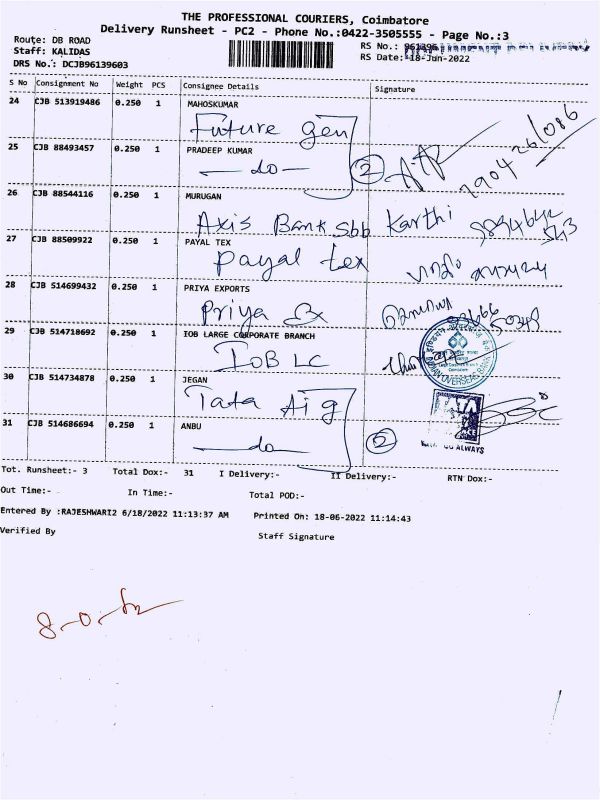 THE PROFESSIONAL COURIERS, Coimbatore
Delivery Runsheet - PC2 - Phone No.:0422-3505555 - Page No.:3
Route: DB ROAD
Staff: KALIDAS
DRS No.: DCJB96139603
RS No.: 961396
RS Date:-18-Jun-2022
S No Consignment No Weight PCS Consignee Details Signature
24 CJB 513919486 0.250 1 MAHOSKUMAR
Future gen
25 CJB 88493457 0.250 1 PRADEEP KUMAR
—do— 2
26 CJB 88544116 0.250 1 MURUGAN
Axis Bank sbb Karthi
27 CJB 88509922 0.250 1 PAYAL TEX
Payal tex
28 CJB 514699432 0.250 1 PRIYA EXPORTS
Priya Ex
29 CJB 514718692 0.250 1 IOB LARGE CORPORATE BRANCH
IOB LC
30 CJB 514734878 0.250 1 JEGAN
Tata Aig
31 CJB 514686694 0.250 1 ANBU
—do— 2
ALWAYS
Tot. Runsheet:- 3 Total Dox:- 31 I Delivery:- II Delivery:- RTN Dox:-
Out Time:- In Time:- Total POD:-
Entered By :RAJESHWARI2 6/18/2022 11:13:37 AM Printed On: 18-06-2022 11:14:43
Verified By Staff Signature